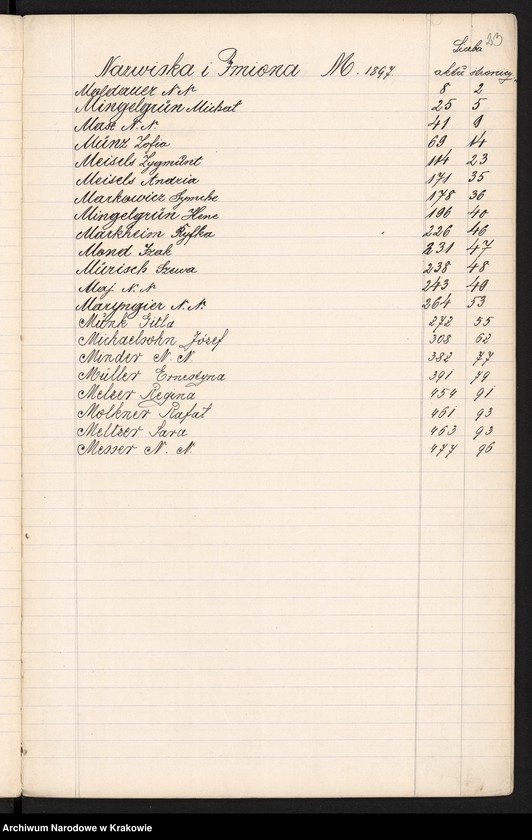 23
Liczba
Nazwiska i Imiona M. 1897.
aktu stronicy
Moldauer N.N. 8 2
Mingelgrün Michał 25 5
Mast N.N. 41 9
Münz Zofia 69 14
Meisels Zygmunt 114 23
Meisels Andzia 171 35
Markowicz Symche 178 36
Mingelgrün Hene 196 40
Markheim Ryfka 226 46
Mond Izak 231 47
Mürisch Szewa 238 48
Maj N.N. 243 49
Maryngier N.N. 264 53
Münk Gitla 272 55
Michaelsohn Józef 308 62
Minder N. N. 382 77
Müller Ernestyna 391 79
Melzer Regina 454 91
Molkner Rafał 461 93
Meltzer Sara 463 93
Messer N. N. 477 96
Archiwum Narodowe w Krakowie